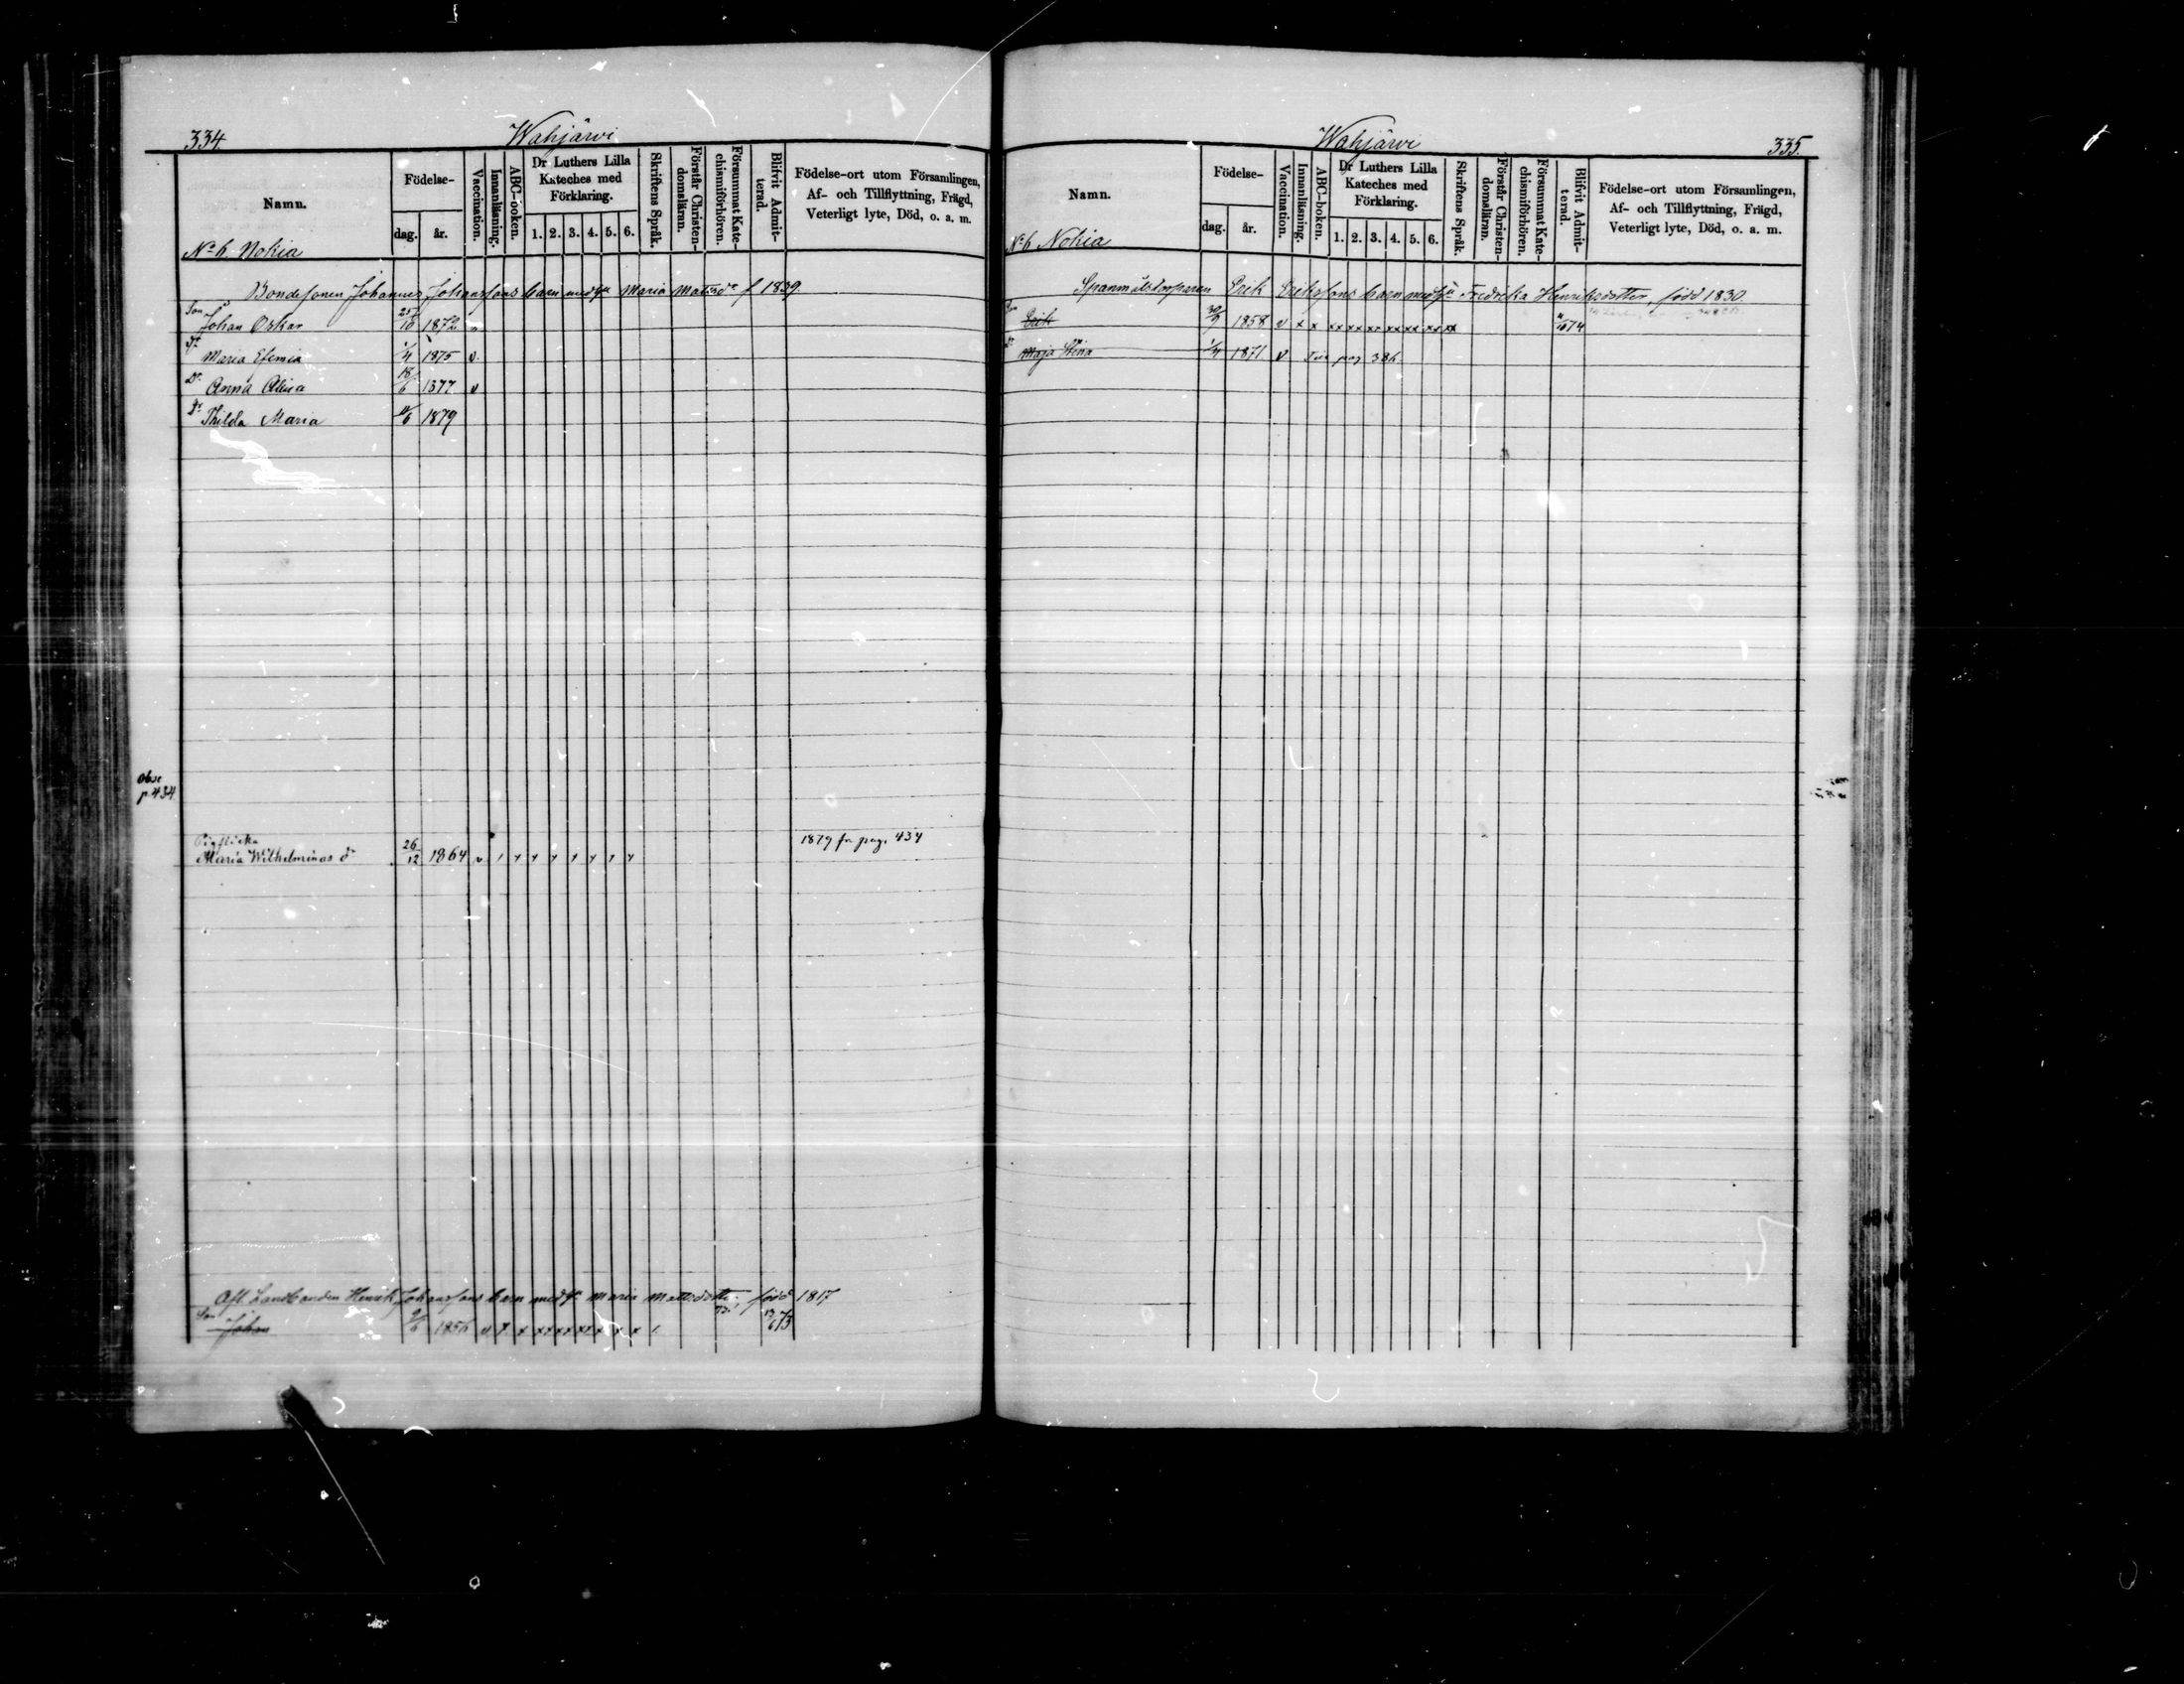 334.
Wahjärvi
Namn.
Födelse-
dag.
år.
Vaccination.
Innanläsning.
ABC-boken.
Dr Luthers Lilla
Kateches med
Förklaring.
1. 2. 3. 4. 5. 6.
Skriftens Språk.
Förstår Christen-
domsläran.
Försummat Kate-
chismiförhören.
Blifvit Admit-
terad.
Födelse-ort utom Församlingen,
Af- och Tillflyttning, Frägd,
Veterligt lyte, Död, o. a. m.
No 6. Nohia
Bondesonen Johannes Johanssons barn med hu Maria Matsdr f 1839.
Son
Johan Oskar 25/10 1872 v
Dr
Maria Efemia 1/4 1875 v.
Dr Anna Alina 18/6 1877 v
Dr Thilda Maria 11/6 1879
obse
p. 434.
Pigflicka
Maria Wilhelminas dr 26/12 1864 v
1879 fr pag. 434
Afl. Landbonden Henrik Johanssons barn med hu Maria Mattsdotter född 1817
Son
Johan 9/6 1856 v x x xx xx xx x x x 73
335.
Wahjärvi
Namn.
Födelse-
dag.
år.
Vaccination.
Innanläsning.
ABC-boken.
Dr Luthers Lilla
Kateches med
Förklaring.
1. 2. 3. 4. 5. 6.
Skriftens Språk.
Förstår Christen-
domsläran.
Försummat Kate-
chismiförhören.
Blifvit Admit-
terad.
Födelse-ort utom Församlingen,
Af- och Tillflyttning, Frägd,
Veterligt lyte, Död, o. a. m.
No 6 Nohia
Spanmålstorparen Erik Erikssons barn med hu Fredrika Henriksdotter, född 1830
Son
Erik 30/9 1858 v x x xx xx xx xx xx xx 74
Dr Maja Stina 1/4 1871. v pag 386.